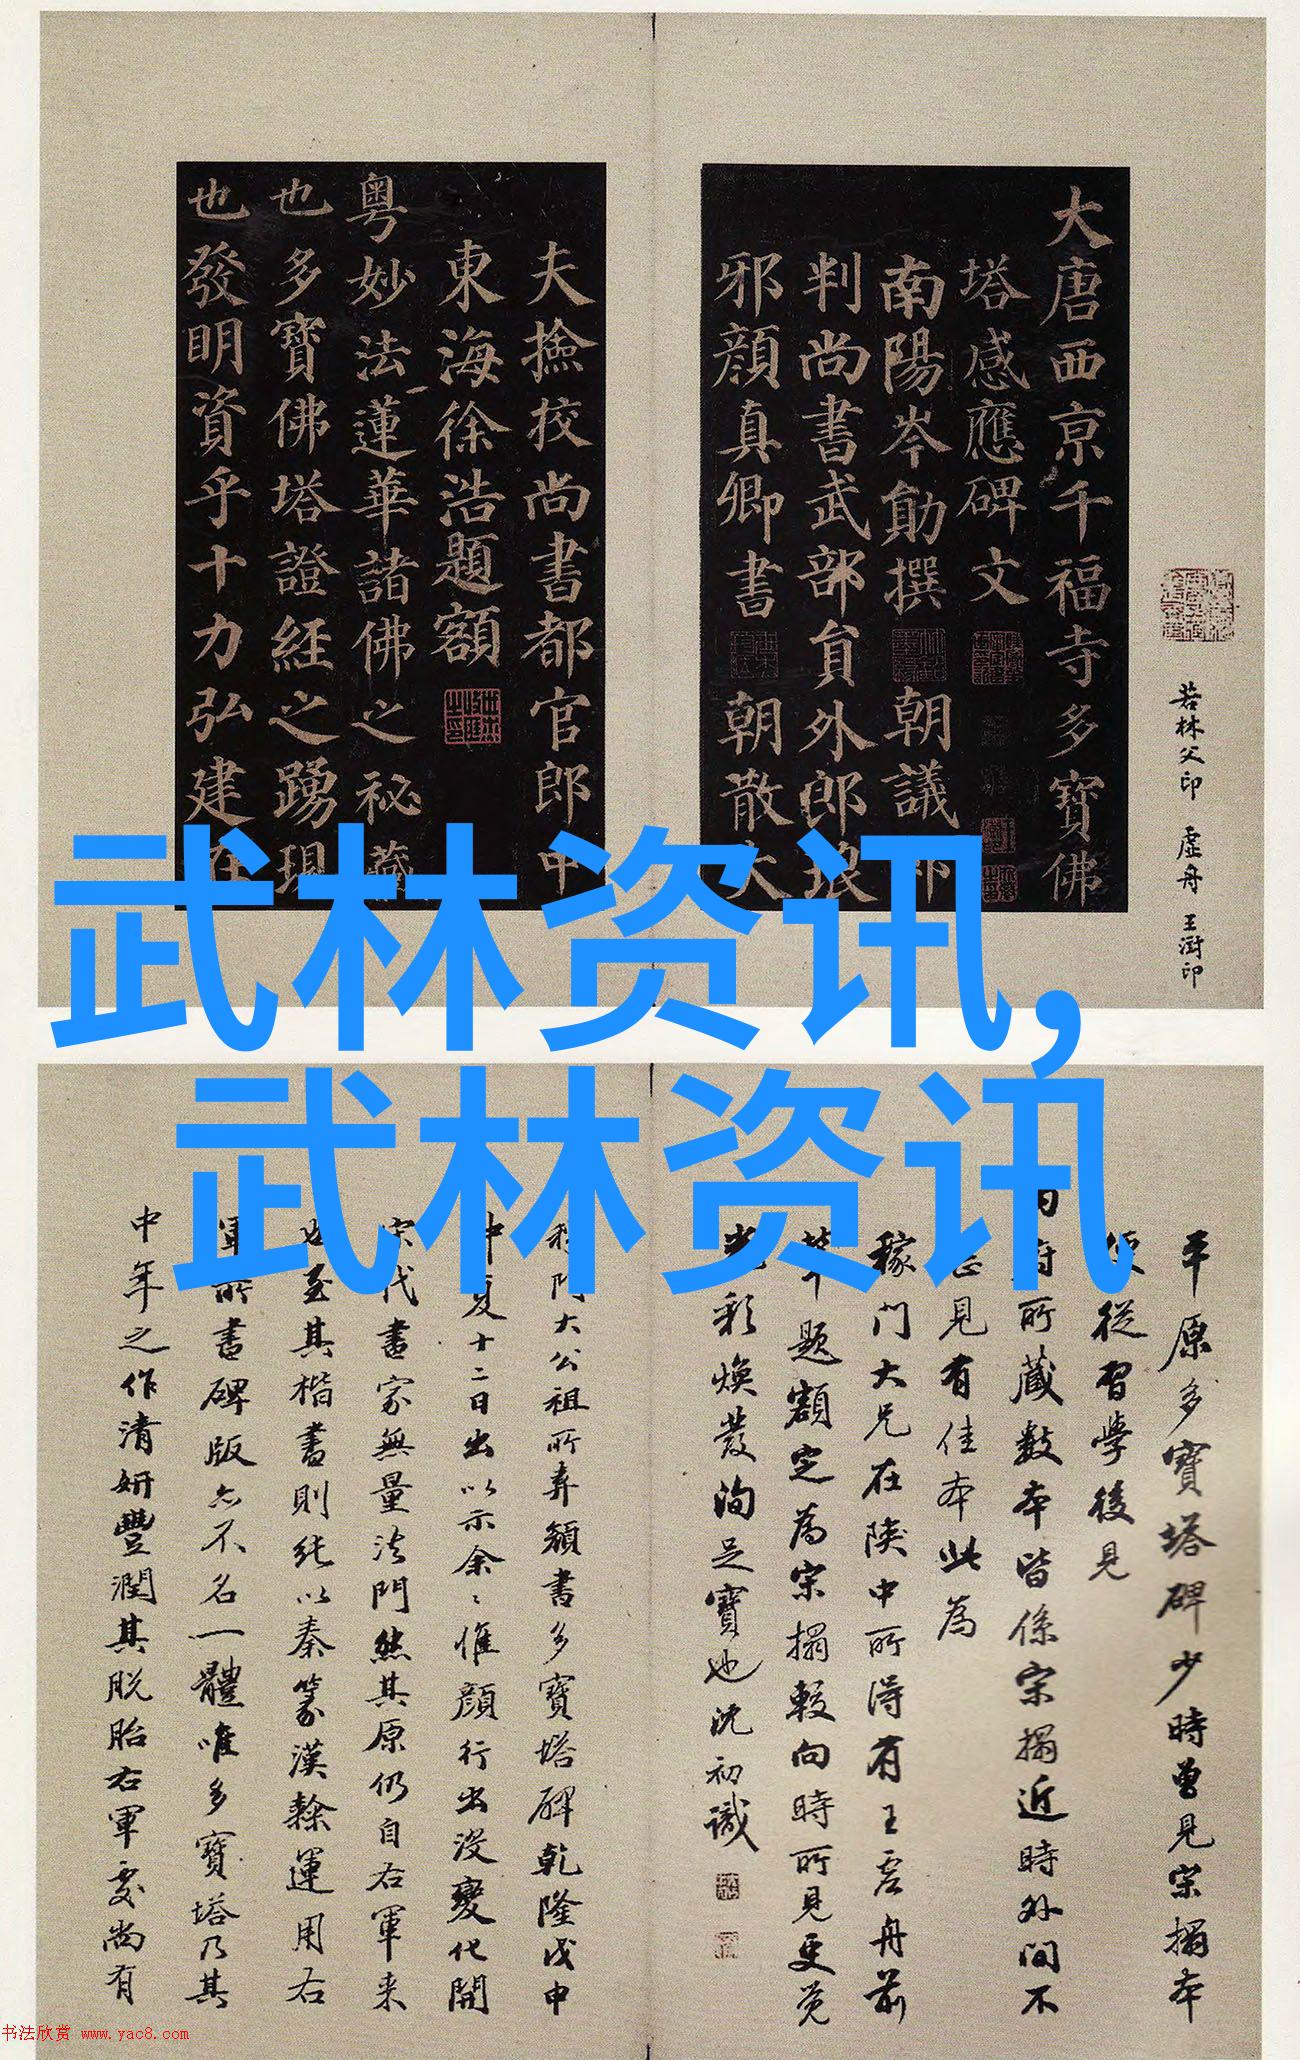 大唐西京千福寺多寶佛
塔感應碑文
南陽岑勛撰 朝議
判尚書武部員外郎琅
邪顏真卿書 朝散大
夫撿挍尚書都官郎中
東海徐浩題額
粵妙法蓮華諸佛之祕藏
也多寶佛塔證經之踴現
也發明資乎十力弘建在
若林父印 虛舟 王澍印
武林资讯,
武林资讯
平原多寶塔碑少時曾見宋搨本
從習學後見
府所藏數本皆係宋搨近時外間不
見有佳本此為
稼門大兄在陝中所得有王虛舟前
輩題額定為宋搨較向時所見更覺
光彩煥發洵足寶也沈初識
稼門大公祖所弆顏書多寶塔碑乾隆戊申
中夏十二日出以示余余惟顏行出沒變化開
宋代書家無量法門然其原仍自右軍来
也至其楷書則純以秦篆漢隸運用右
軍所書碑版亦不名一體唯多寶塔乃其
中年之作清妍豐潤其脫胎右軍處尚有
书法欣赏 www.yac8.com